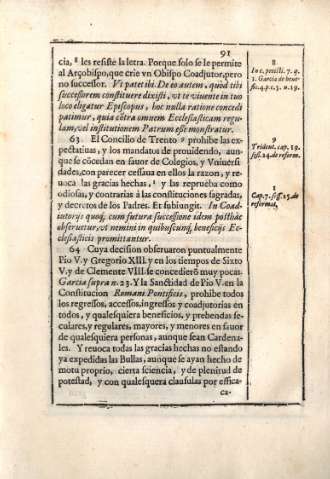 91
cia, 8 les resiste la letra. Porque solo se le permite
al Arçobispo, que crie vn Obispo Coadjutor, pero
no successor. Vt patet ibi. De eo autem, quod tibi
successorem constituere dixisti, vt te viuente in tuo
loco eligatur Episcopus, hoc nulla ratione concedi
patimur, quia cõtra omnem Ecclesiasticam regu-
lam, vel institutionem Patrum esse monstratur.
63 El Concilio de Trento 9 prohibe las ex-
pectatiuas, y los mandatos de prouidendo, aun-
que se cõcedan en fauor de Colegios, y Vniuersi-
dades, con parecer cessaua en ellos la razon, y reuo-
ca las gracias hechas, 1 y las reprueba como
odiosas, y contrarias à las constituciones sagradas,
y decretos de los Padres. Et subiungit. In Coad-
iutorijs quoq; cum futura successione idem posthac
obseruetur, vt nemini in quibuscunq; beneficijs Ec-
clesiasticis promittantur.
64 Cuya decision obseruaron puntualmente
Pio V. y Gregorio XIII. y en los tiempos de Sixto
V. y de Clemente VIII. se concedierõ muy pocas.
Garcia supra n. 23. Y la Sanctidad de Pio V. en la
Constitucion Romani Pontificis, prohibe todos
los regressos, accessos, ingressos y coadjutorias en
todos, y qualesquiera beneficios, y prebendas se-
culares, y regulares, mayores, y menores en fauor
de qualesquiera personas, aunque sean Cardena-
les. Y reuoca todas las gracias hechas no estando
ya expedidas las Bullas, aunque se ayan hecho de
motu proprio, cierta sciencia, y de plenitud de
potestad, y con qualesquiera clausulas por effica-
ca-
8
In c. petisti. 7. q.
1. Garcia de bene-
fic. 4. p. c. 5. n. 19.
9
Trident. cap. 19.
sess. 24. de reform.
1
Cap. 7. sess. 25. de
reformat.